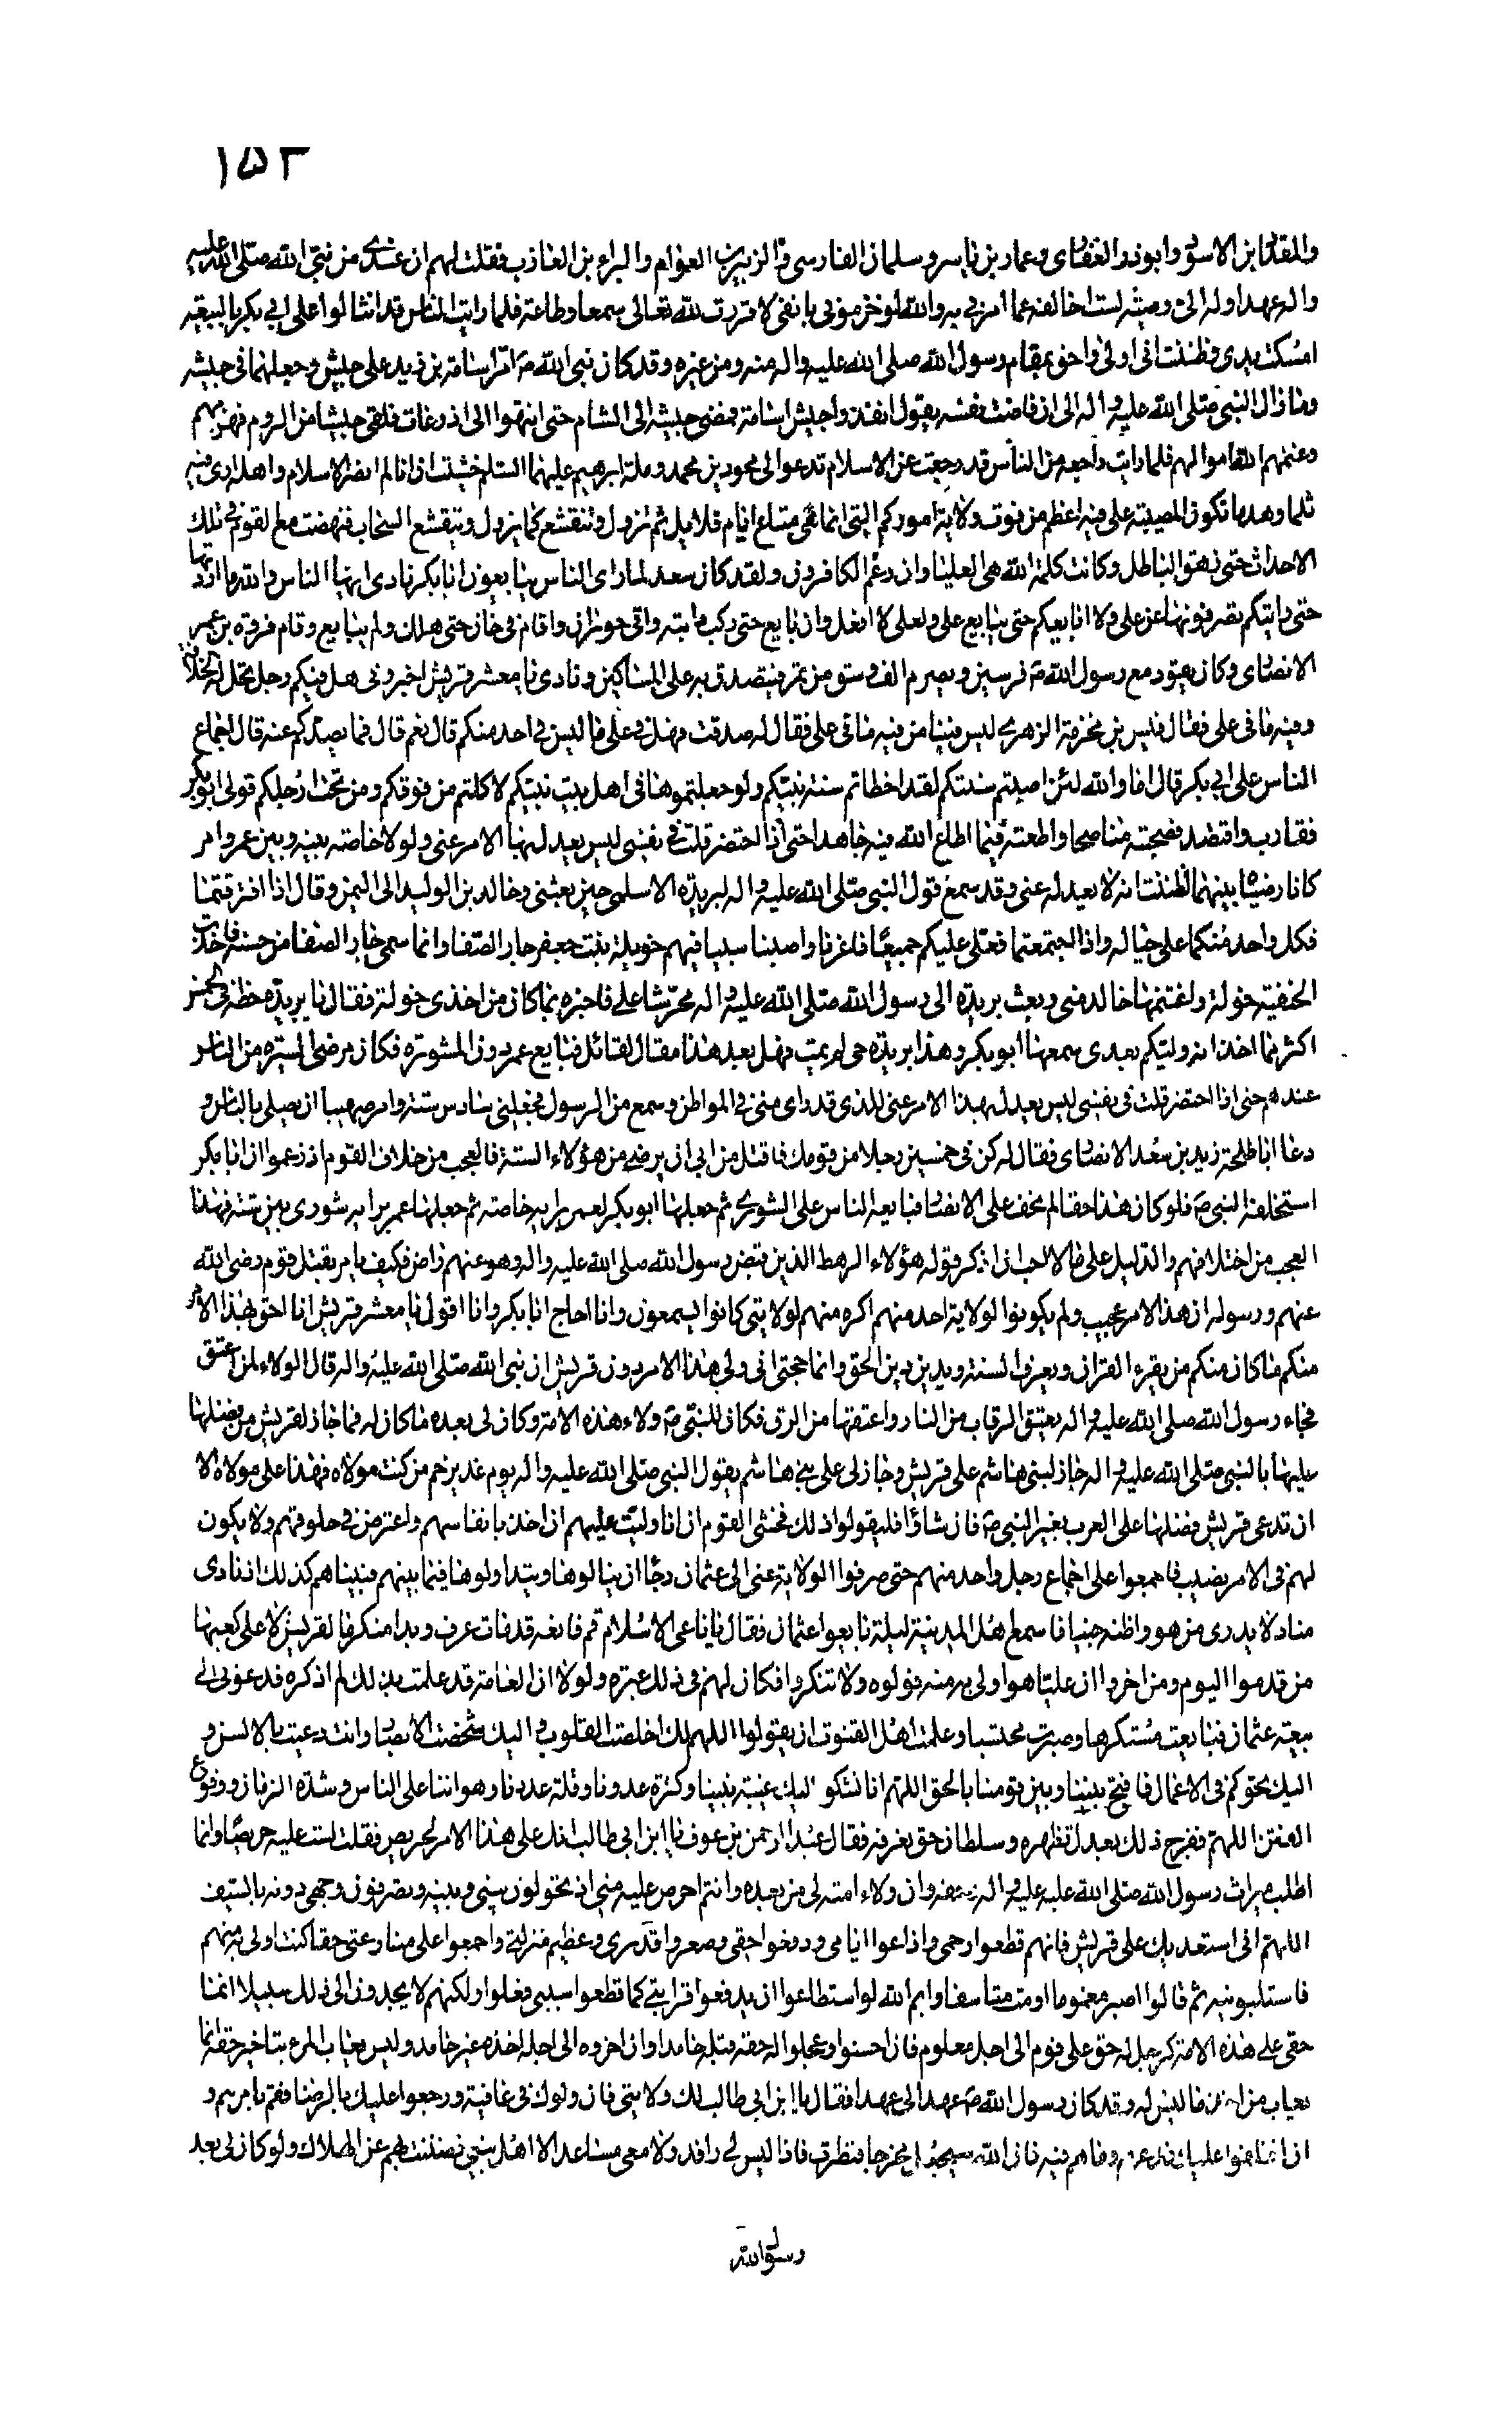 ١٥٢
والمقداد بن الاسود وابوذر الغفاری وعمار بن یاسر وسلمان الفارسی والزبیر بن العوام والبراء بن العازب فقلت لهم ان عندی من نبی الله صلی الله علیه
واله عهدا وله الی وصیة لست اخالفه عما امرنی به والله لو خزمونی بانفی لاقررت لله تعالی سمعا وطاعة فلما رایت الناس قد انثالوا علی ابی بکر بالبیعة
امسکت یدی وظننت انی اولی واحق بمقام رسول الله صلی الله علیه واله منه ومن غیره وقد کان نبی الله ص امر اسامة بن زید علی جیش وجعلهما فی جیشه
وما زال النبی صلی الله علیه واله الی ان فاضت نفسه یقول انفذوا جیش اسامة فمضی جیشه الی الشام حتی انتهوا الی اذرعات فلقی جیشا من الروم فهزمهم
وغنمهم الله اموالهم فلما رایت راجعة من الناس قد رجعت عن الاسلام تدعو الی محو دین محمد وملة ابرهیم علیهما السلم خشیت ان انا لم انصر الاسلام واهله اری فیه
ثلما وهدما تکون المصیبة علی فیه اعظم من فوت ولایة امورکم التی انما هی متاع ایام قلایل ثم تزول وتنقشع کما یزول وینقشع السحاب فنهضت مع القوم فی تلک
الاحداث حتی زهق الباطل وکانت کلمة الله هی العلیا وان رغم الکافرون ولقد کان سعد لما رای الناس یبایعون ابابکر نادی ایها الناس والله ما اردتها
حتی رایتکم تصرفونها عن علی ولا ابایعکم حتی یبایع علی ولعلی لا افعل وان بایع حتی رکب دابته واتی حوران واقام فی خان حتی هلک ولم یبایع وقام فروة بن عمر
الانصاری وکان یقود مع رسول الله ص فرسین ویصرم الف وسق من تمر فیتصدق به علی المساکین ونادی یا معشر قریش اخبرونی هل فیکم رجل تحل له الخلافة
وفیه ما فی علی فقال قیس بن مخرمة الزهری لیس فینا من فیه ما فی علی فقال له صدقت فهل فی علی ما لیس فی احد منکم قال نعم قال فما یصدکم عنه قال اجماع
الناس علی ابی بکر قال اما والله لئن اصبتم سنتکم لقد اخطاتم سنة نبیکم ولو جعلتموها فی اهل بیت نبیکم لاکلتم من فوقکم ومن تحت ارجلکم فولی ابو بکر
فقارب واقتصد فصحبته مناصحا واطعته فیما اطاع الله فیه جاهدا حتی اذا احتضر قلت فی نفسی لیس یعدل بهذا الامر عنی ولولا خاصة بینه وبین عمر وامر
کانا رضیاه بینهما لظننت انه لا یعدله عنی وقد سمع قول النبی صلی الله علیه واله لبریدة الاسلمی حین بعثنی وخالد بن الولید الی الیمن وقال اذا افترقتما
فکل واحد منکما علی حیاله واذا اجتمعتما فعلی علیکم جمیعا فاغرنا واصبنا سبیا فیهم خویلة بنت جعفر جار الصفا وانما سمی جار الصفا من حسنه فاخذت
الحنفیة خولة واغتنمها خالد منی وبعث بریدة الی رسول الله صلی الله علیه واله محرشا علی فاخبره بما کان من اخذی خولة فقال یا بریدة حظه فی الخمس
اکثر مما اخذ انه ولیکم بعدی سمعها ابو بکر وهذا بریدة حی لم یمت فهل بعد هذا مقال لقائل فبایع عمر دون المشورة فکان مرضی السیرة من الناس
عندهم حتی اذا احتضر قلت فی نفسی لیس یعدل بهذا الامر عنی للذی قد رای منی فی المواطن وسمع من الرسول فجعلنی سادس ستة وامر صهیبا ان یصلی بالناس و
دعا اباطلحة زید بن سعد الانصاری فقال له کن فی خمسین رجلا من قومک فاقتل من ابی ان یرضی من هؤلاء الستة فالعجب من خلاف القوم اذ زعموا ان ابابکر
استخلفه النبی ص فلو کان هذا حقا لم یخف علی الانصار فبایعه الناس علی الشوری ثم جعلها ابو بکر لعمر برایه خاصة ثم جعلها عمر برایه شوری بین ستة فهذا
العجب من اختلافهم والدلیل علی ما لا احب ان اذکر قوله هؤلاء الرهط الذین قبض رسول الله صلی الله علیه واله وهو عنهم راض فکیف یامر بقتل قوم رضی الله
عنهم ورسوله ان هذا الامر عجیب ولم یکونوا لولایة احد منهم اکره منهم لولایتی کانوا یسمعون وانا احاج ابابکر وانا اقول یا معشر قریش انا احق بهذا الامر
منکم ما کان منکم من یقرء القران ویعرف السنة ویدین بدین الحق وانما حجتی انی ولی هذا الامر دون قریش ان نبی الله صلی الله علیه واله قال الولاء لمن اعتق
فجاء رسول الله صلی الله علیه واله بعتق الرقاب من النار واعتقها من الرق فکان للنبی ص ولاء هذه الامة وکان لی بعده ما کان له فما جاز لقریش من فضلها
علیها بالنبی صلی الله علیه واله جاز لبنی هاشم علی قریش وجاز لی علی بنی هاشم بقول النبی صلی الله علیه واله یوم غدیر خم من کنت مولاه فهذا علی مولاه الا
ان تدعی قریش فضلها علی العرب بغیر النبی ص فان شاؤا فلیقولوا ذلک فخشی القوم ان انا ولیت علیهم ان اخذ بانفاسهم واعترض فی حلوقهم ولا یکون
لهم فی الامر نصیب فاجمعوا علی اجماع رجل واحد منهم حتی صرفوا الولایة عنی الی عثمان رجاء ان ینالوها ویتداولوها فیما بینهم فبینا هم کذلک اذ نادی
مناد لا یدری من هو واظنه جنیا فاسمع اهل المدینة لیلة بایعوا عثمان فقال یا ناعی الاسلام قم فانعه قد مات عرف وبدا منکر ما لقریش لا علی کعبها
من قدموا الیوم ومن اخروا ان علیا هو اولی به منه فولوه ولا تنکروا فکان لهم فی ذلک عبرة ولولا ان العامة قد علمت بذلک لم اذکره فدعونی الی
بیعة عثمان فبایعت مستکرها وصبرت محتسبا وعلمت اهل القنوت ان یقولوا اللهم لک اخلصت القلوب والیک شخصت الابصار وانت دعیت بالالسن و
الیک تحوکم فی الاعمال فافتح بیننا وبین قومنا بالحق اللهم انا نشکو الیک غیبة نبینا وکثرة عدونا وقلة عددنا وهواننا علی الناس وشدة الزمان ووقوع
الفتن اللهم ففرج ذلک بعدل تظهره وسلطان حق تعرفه فقال عبد الرحمن بن عوف یا ابن ابی طالب انک علی هذا الامر لحریص فقلت لست علیه حریصا وانما
اطلب میراث رسول الله صلی الله علیه واله وحقه وان ولاء امته لی من بعده وانتم احرص علیه منی اذ تحولون بینی وبینه وتصرفون وجهی دونه بالسیف
اللهم انی استعدیک علی قریش فانهم قطعوا رحمی واضاعوا ایامی ودفعوا حقی وصغروا قدری وعظیم منزلتی واجمعوا علی منازعتی حقا کنت اولی به منهم
فاستلبونیه ثم قالوا اصبر مغموما او مت متاسفا وایم الله لو استطاعوا ان یدفعوا قرابتی کما قطعوا سببی فعلوا ولکنهم لا یجدون الی ذلک سبیلا انما
حقی علی هذه الامة کرجل له حق علی قوم الی اجل معلوم فان احسنوا وعجلوا له حقه قبله حامدا وان اخروه الی اجله اخذه غیر حامد ولیس یعاب المرء بتاخیر حقه انما
یعاب من اخذ ما لیس له وقد کان رسول الله ص عهد الی عهدا فقال یا ابن ابی طالب لک ولایتی فان ولوک فی عافیة ورجعوا علیک بالرضا فقم بامرهم و
ان اختلفوا علیک فدعهم وما هم فیه فان الله سیجعل لک مخرجا فنظرت فاذا لیس لی رافد ولا معی مساعد الا اهل بیتی فضننت بهم عن الهلاک ولو کان لی بعد
رسول الله